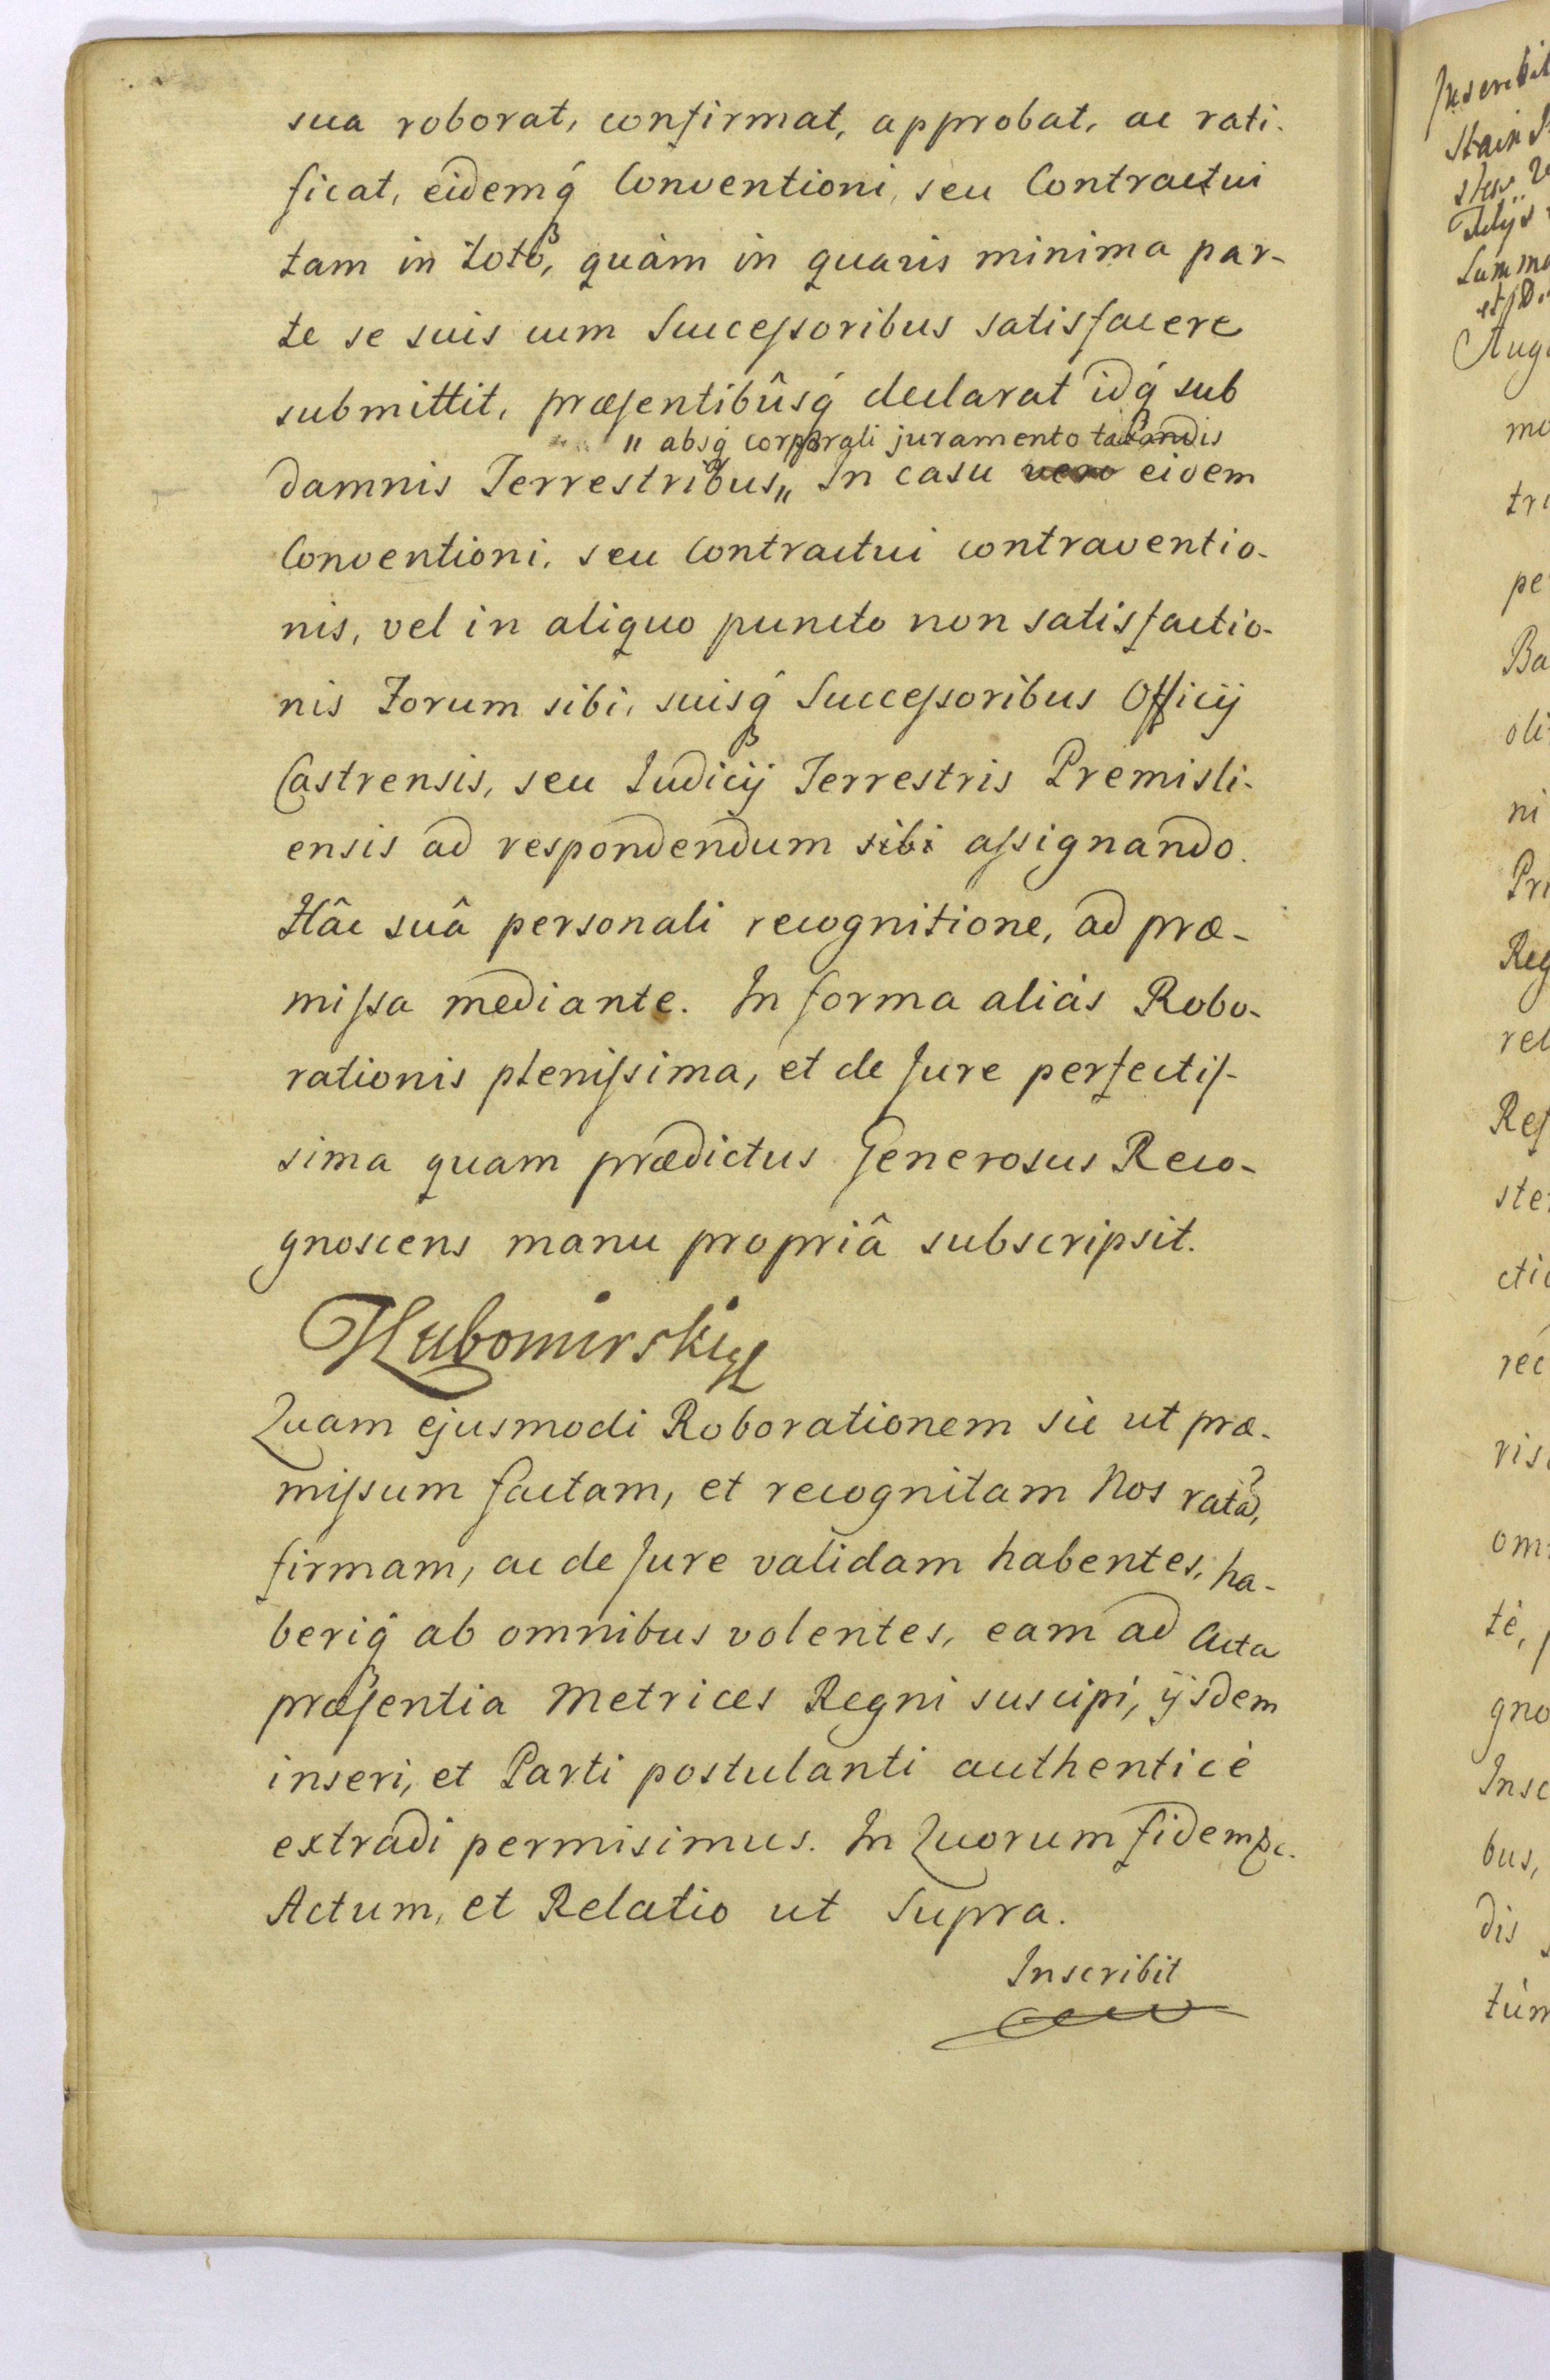 sua roborat, confirmat, approbat, ac rati-
ficat, eidemq́ Conventioni, seu Contractui
tam in toto, quàm in quavis minima par-
te se suis cum Succeſsoribus satisfacere
submittit, præſentibûsq́ declarat idq́ sub
„ absq́ corporali juramento taxandis
damnis Terrestribus„ In casu vero eidem
Conventioni, seu Contractui contraventio-
nis, vel in aliquo puncto non satisfactio-
nis Forum sibi, suisq́ Succeſsoribus Officij
Castrensis, seu Judicij Terrestris Premisli-
ensis ad respondendum sibi aſsignando.
Hâc suâ personali recognitione, ad præ-
miſsa mediante. In forma aliàs Robo-
rationis pleniſsima, et de Jure perfectiſ-
sima quam prædictus Generosus Reco-
gnoscens manu propriâ subscripsit.
Lubomirski
Quam ejusmodi Roborationem sic ut præ-
miſsum factam, et recognitam Nos ratã,
firmam, ac de Jure validam habentes, ha-
beriq́ ab omnibus volentes, eam ad Acta
præſentia Metrices Regni suscipi, ijsdem
inseri, et Parti postulanti authenticè
extradi permisimus. In Quorum fidem &c.
Actum, et Relatio ut Supra.
Inscribit
Inscribit
Summa
mo
pe
Ba
oli
ni
Pri
Reg
rel
Reſ
ste
cti
rec
vis
om
tè,
gno
Insc
bus,
dis